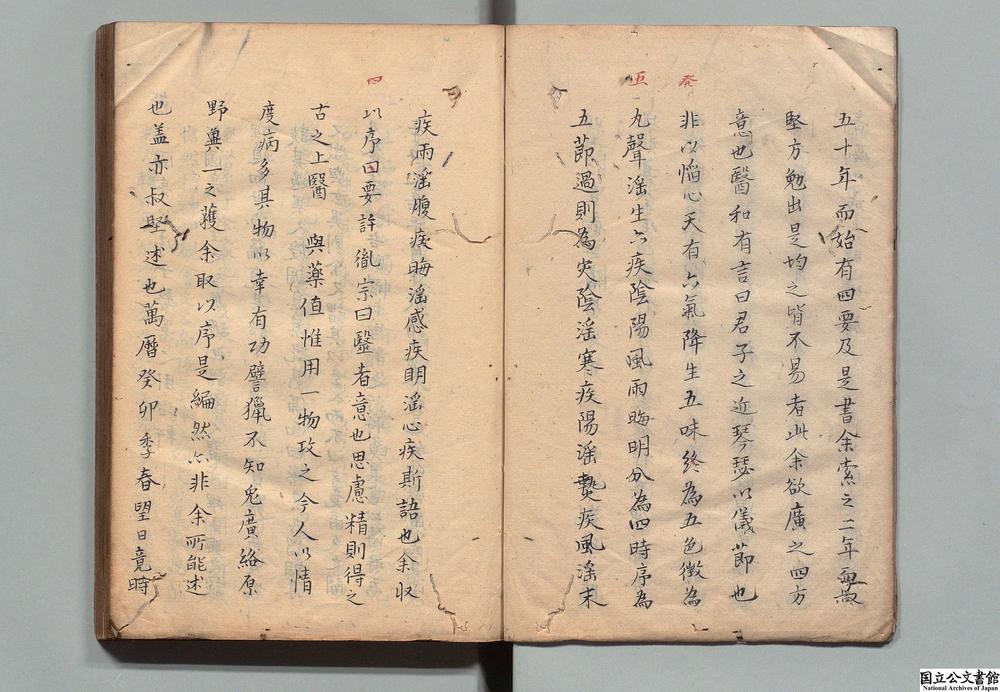 五十年而始有四要及是書余索之二年而叔
堅方勉出是均之皆不易者此余欲廣之四方
意也醫和有言曰君子之近琴瑟以儀節也
癸
非以慆心天有六氣降生五味終為五色徵為
五
九聲淫生六疾陰陽風雨晦明分為四時序為
五節過則為灾陰淫寒疾陽淫𤍠疾風淫末
疾雨淫腹疾晦淫感疾明淫心疾斯語也余収
四
以序曰要許胤宗曰醫者意也思慮精則得之
古之上醫 與藥值惟用一物攻之今人以情
度病多其物以幸有功譬獵不知兔廣絡原
野兾一之獲余取以序是編然亦非余所能述
也盖亦叔堅述也萬曆癸卯季春望日竟時
国立公文書館
National Archives of Japan